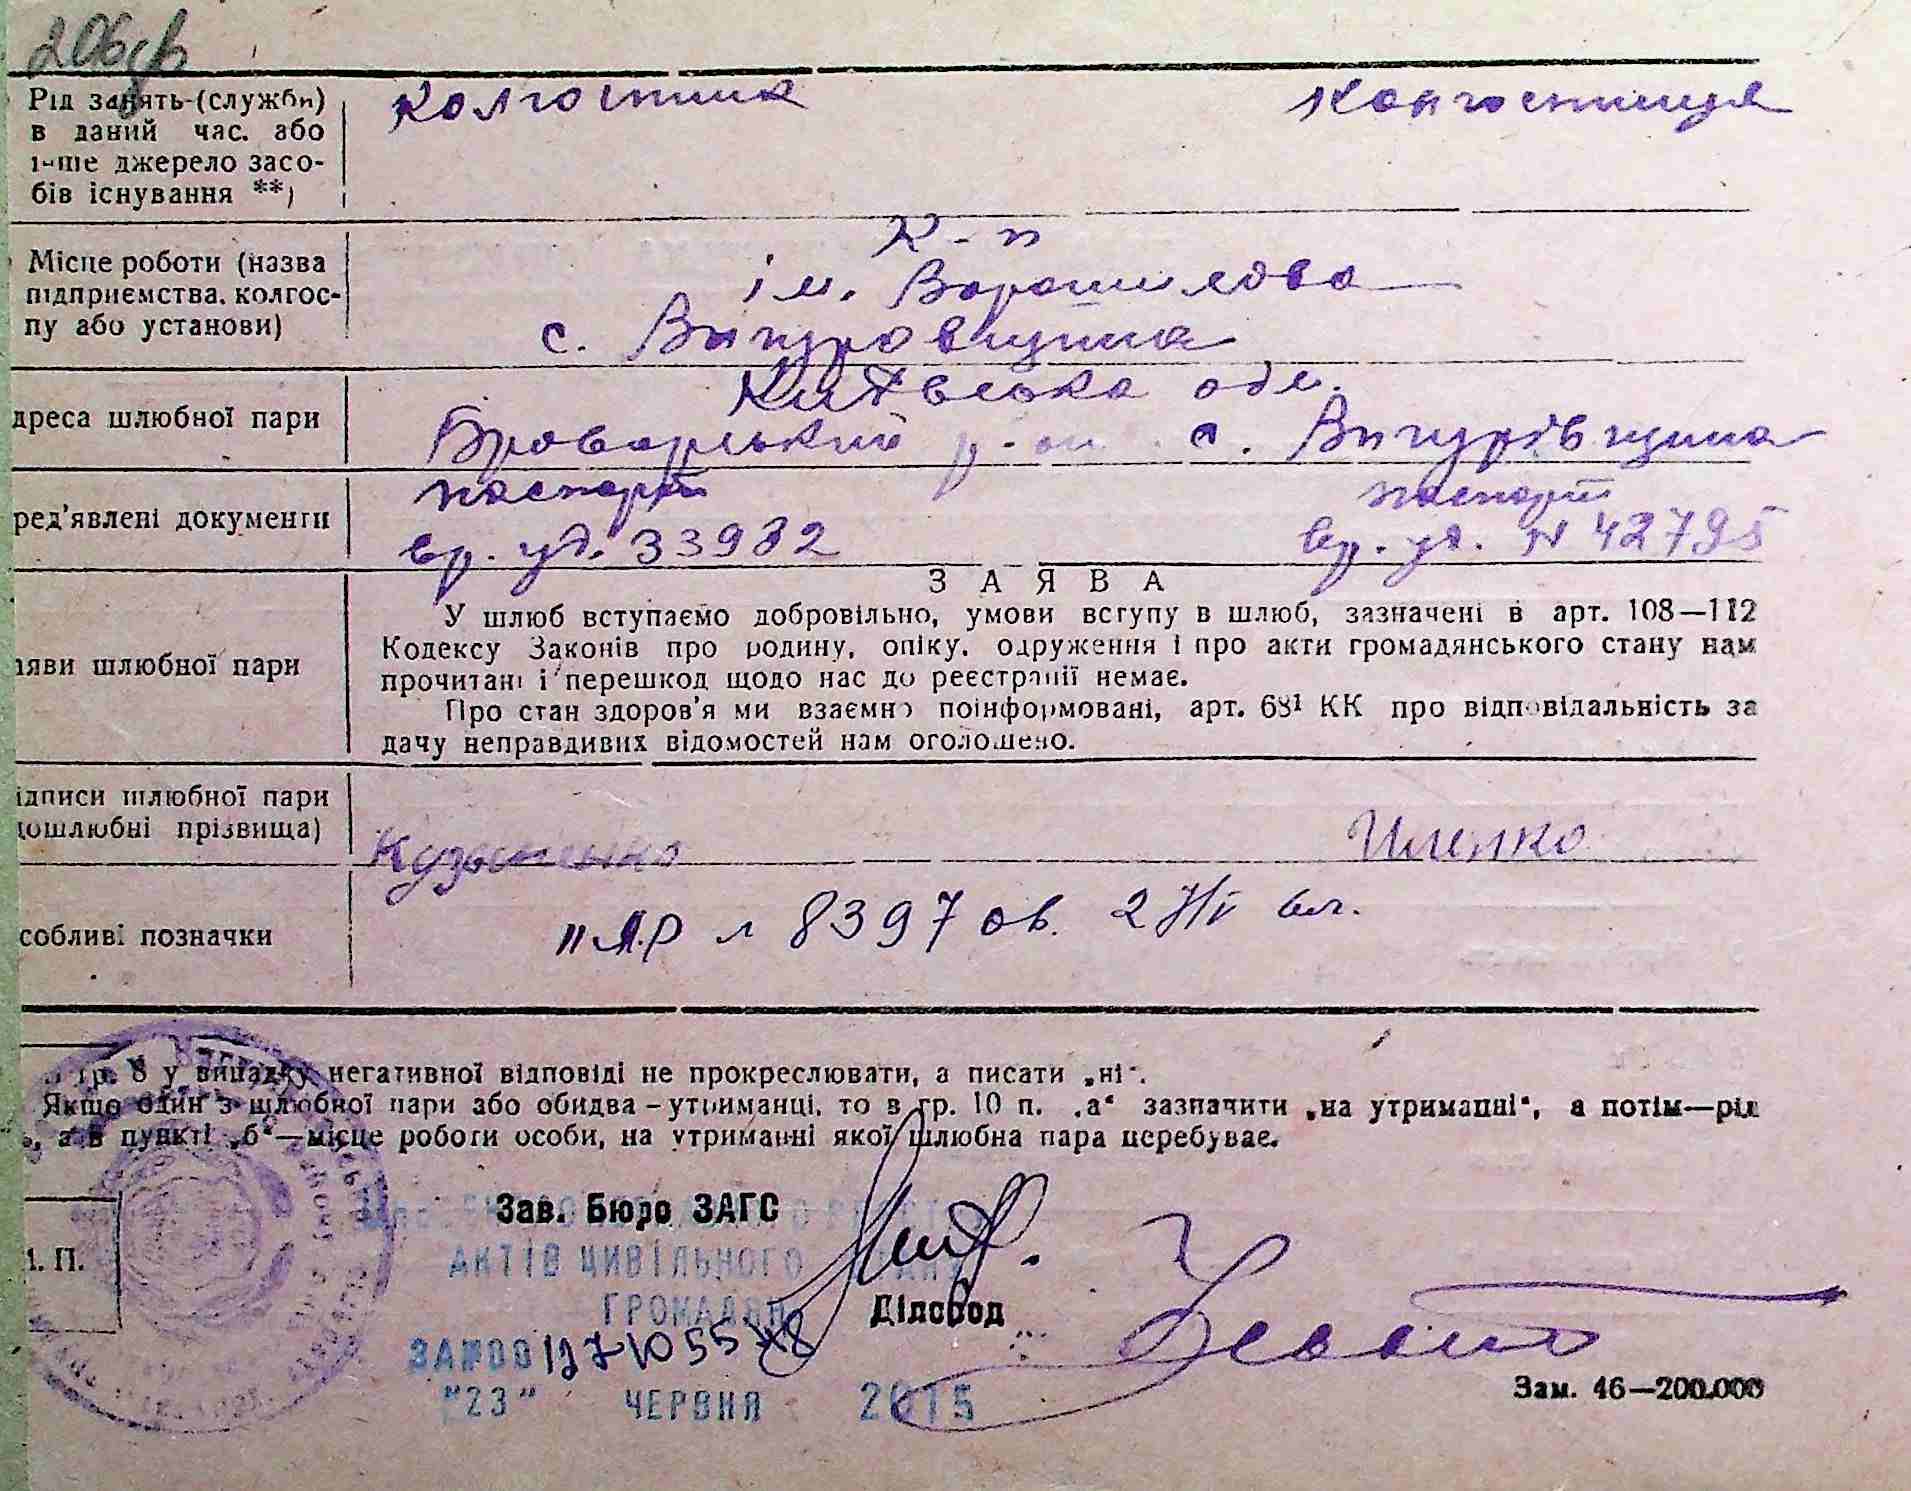 206
Рід занять (служби)
в даний час. або
інше джерело засо-
бів існування **)
колгоспник
колгоспниця
Місце роботи (назва
підприємства, колгос-
пу або установи)
К-п
ім. Ворошилова
с. Вигуровщина
дреса шлюбної пари
Київська обл.
Броварський р-он с. Вигурівщина
ред'явлені документи
паспорт
вр. уд. 33982
паспорт
вр. уд. № 42795
ЗАЯВА
У шлюб вступаємо добровільно, умови вступу в шлюб, зазначені в арт. 108—112
Кодексу Законів про родину, опіку, одруження і про акти громадянського стану нам
прочитані і перешкод щодо нас до реєстрації немає.
Про стан здоров'я ми взаємно поінформовані, арт. 68¹ КК про відповідальність за
дачу неправдивих відомостей нам оголошено.
яви шлюбної пари
ідписи шлюбної пари
дошлюбні прізвища)
Кузьменко
Ищенко
собливі позначки
8397
гр. 8 у випадку негативної відповіді не прокреслювати, а писати „ні".
Якщо один з шлюбної пари або обидва—утриманці, то в гр. 10 п. „а" зазначити „на утриманні", а потім—рід
, а в пункті „б"—місце роботи особи, на утриманні якої шлюбна пара перебуває.
Зав. Бюро ЗАГС
АКТІВ ЦИВІЛЬНОГО СТАНУ
ГРОМАДЯН
М. П.
Діловод
"23" ЧЕРВНЯ 2015
Зам. 46—200.000